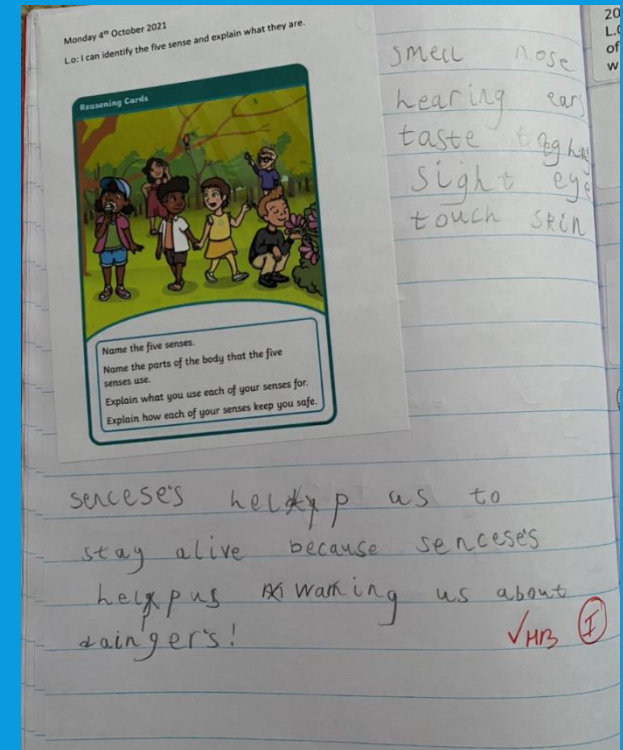 Monday 4th October 2021
L.o: I can identify the five sense and explain what they are.
Reasoning Cards
Name the five senses.
Name the parts of the body that the five
senses use.
Explain what you use each of your senses for.
Explain how each of your senses keep you safe.
smell nose
hearing ears
taste
sight eye
touch skin
senceses help us to
stay alive because senceses
help us warning us about
dainger's!
✓HB I
20
L.
of
w